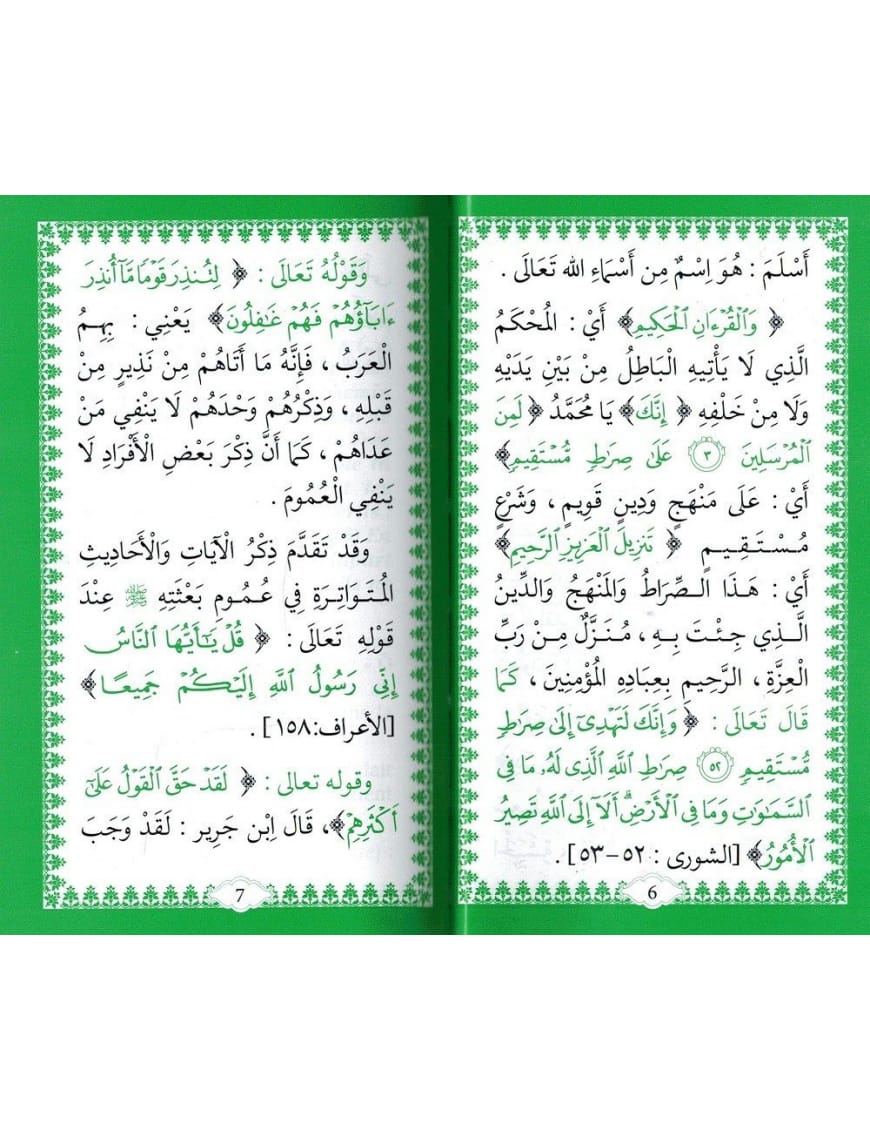 أَسْلَمَ : هُوَ اِسْمٌ مِن أَسْمَاءِ الله تَعَالَى .
﴿ وَٱلْقُرْءَانِ ٱلْحَكِيمِ﴾ أَيْ : الْمُحْكَمُ
الَّذِي لَا يَأْتِيهِ الْبَاطِلُ مِنْ بَيْنِ يَدَيْهِ
وَلَا مِنْ خَلْفِهِ ﴿ إِنَّكَ﴾ يَا مُحَمَّدُ ﴿ لَمِنَ
ٱلْمُرْسَلِينَ ٣ عَلَىٰ صِرَٰطٍ مُّسْتَقِيمٍ﴾
أَيْ : عَلَى مَنْهَجٍ وَدِينٍ قَوِيمٍ ، وَشَرْعٍ
مُـسْـتَـقِـيـمٍ ﴿ تَنزِيلَ ٱلْعَزِيزِ ٱلرَّحِيمِ﴾
أَيْ : هَـذَا الـصِّرَاطُ وَالمَنْهَجُ وَالدِّينُ
الَّـذِي جِـئْـتَ بِــهِ ، مُـنَـزَّلٌ مِــنْ رَبِّ
الْعِزَّةِ ، الرَّحِيمِ بِعِبَادِهِ الْمُؤْمِنِينَ ، كَمَا
قَالَ تَعَالَى : ﴿ وَإِنَّكَ لَتَهْدِىٓ إِلَىٰ صِرَٰطٍ
مُّسْتَقِيمٍ ٥٢ صِرَٰطِ ٱللَّهِ ٱلَّذِى لَهُۥ مَا فِى
ٱلسَّمَٰوَٰتِ وَمَا فِى ٱلْأَرْضِ ۗ أَلَآ إِلَى ٱللَّهِ تَصِيرُ
ٱلْأُمُورُ﴾ [الشورى : ٥٢-٥٣] .
6
وَقَوْلُهُ تَعَالَى : ﴿ لِتُنذِرَ قَوْمًا مَّآ أُنذِرَ
ءَابَآؤُهُمْ فَهُمْ غَٰفِلُونَ﴾ يَعْنِي : بِهِمُ
الْعَرَبُ ، فَإِنَّهُ مَا أَتَاهُمْ مِنْ نَذِيرٍ مِنْ
قَبْلِهِ ، وَذِكْرُهُمْ وَحْدَهُمْ لَا يَنْفِي مَنْ
عَدَاهُمْ ، كَمَا أَنَّ ذِكْرَ بَعْضِ الْأَفْرَادِ لَا
يَنْفِي الْعُمُومَ .
وَقَدْ تَقَدَّمَ ذِكْرُ الْآيَاتِ وَالْأَحَادِيثِ
الْمُتَـوَاتِـرَةِ فِي عُـمُـومِ بَعْثَتِهِ ﷺ عِنْدَ
قَوْلِهِ تَعَالَى : ﴿ قُلْ يَٰٓأَيُّهَا ٱلنَّاسُ
إِنِّى رَسُولُ ٱللَّهِ إِلَيْكُمْ جَمِيعًا﴾
[الأعراف:١٥٨] .
وقوله تعالى : ﴿ لَقَدْ حَقَّ ٱلْقَوْلُ عَلَىٰٓ
أَكْثَرِهِمْ﴾، قَالَ اِبْن جَرِير : لَقَدْ وَجَبَ
7